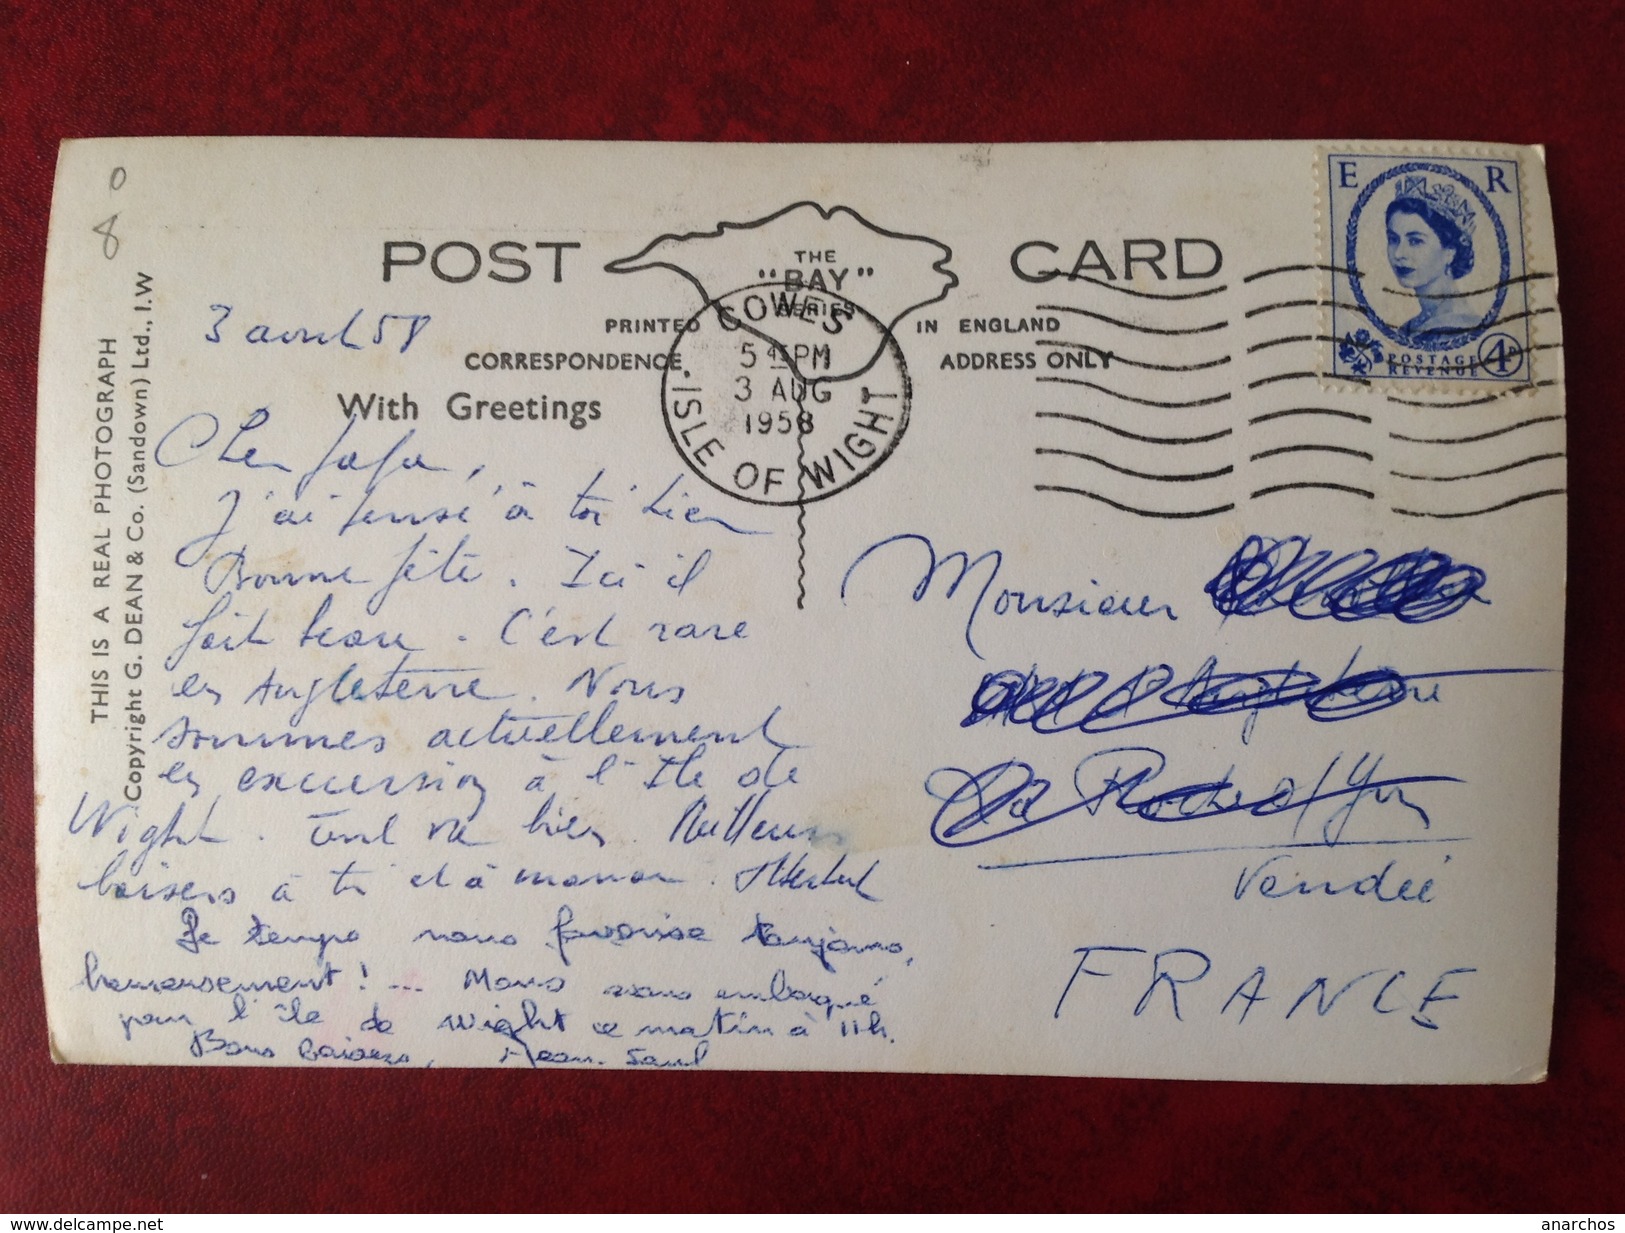 80
POST CARD
THE
"BAY"
SERIES
PRINTED IN ENGLAND
CORRESPONDENCE ADDRESS ONLY
With Greetings
COWES
5 45 PM
3 AUG
1958
ISLE OF WIGHT
E R
POSTAGE
REVENUE
4D
THIS IS A REAL PHOTOGRAPH
Copyright G. DEAN & Co. (Sandown) Ltd., I.W
3 août 58
Cher papa,
J'ai pensé à toi bien
Bonne fête. Ici il
fait beau. C'est rare
en Angleterre. Nous
sommes actuellement
en excursion à l'Ile de
Wight. Tout va bien. Meilleurs
baisers à toi et à maman.
Le temps nous favorise toujours,
heureusement! ... Nous nous embarqué
pour l'île de Wight ce matin à 11h.
Bons baisers, Jean Paul
Monsieur
d'Angleterre
La Roche s/Yon
Vendée
FRANCE
anarchos